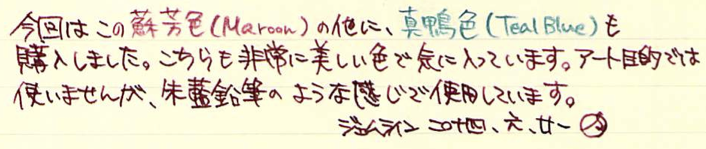 今回はこの蘇芳色(Maroon)の他に、真鴨色(Teal Blue)も
購入しました。こちらも非常に美しい色で気に入っています。アート目的では
使いませんが、朱藍鉛筆のような感じで使用しています。
ジェムライン 二十四、六、廿一